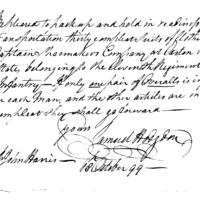 Be pleased to pack up and hold in readiness
transportation thirty compleat suits of clothes
Captain Shoemakers Company at Easton
State, belonging to the Eleventh Regiment
Infantry — If only one pair of Overalls is in
each Man, and the other articles are in
compleat they shall go forward —
yours
Samuel Hodgdon
John Harris
October 99